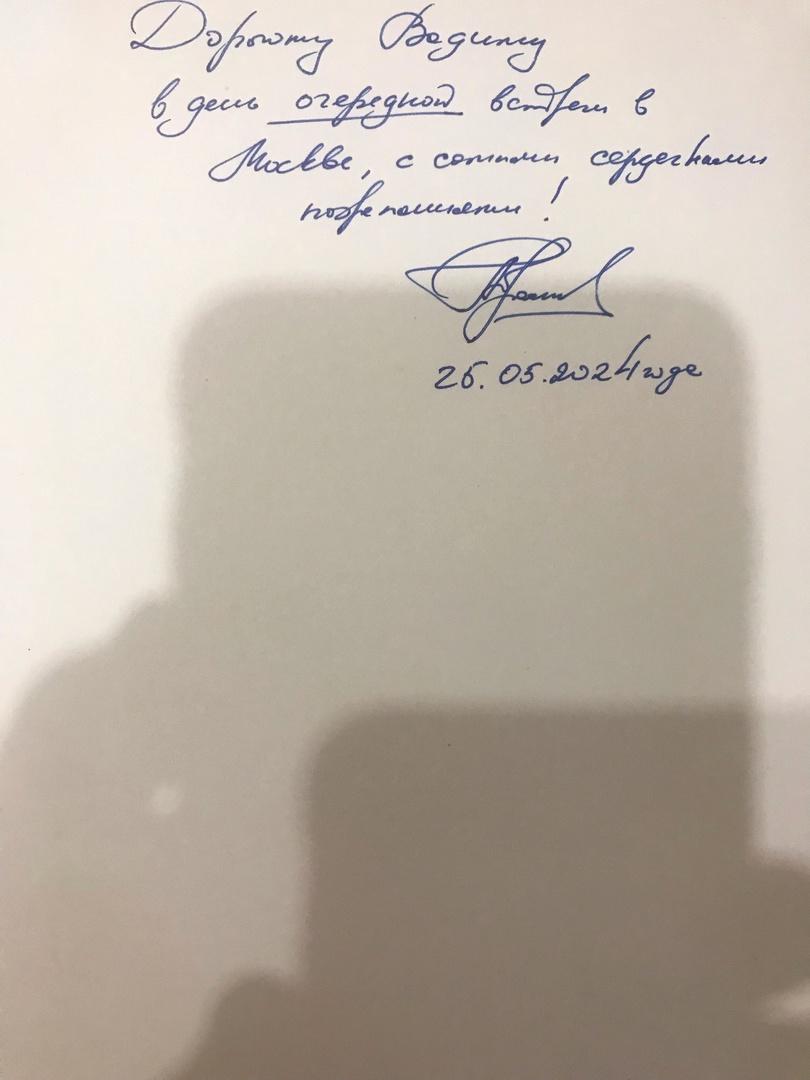 Дорогому Вадиму
в день очередной встречи в
Москве, с самыми сердечными
пожеланиями!
25.05.2024 года